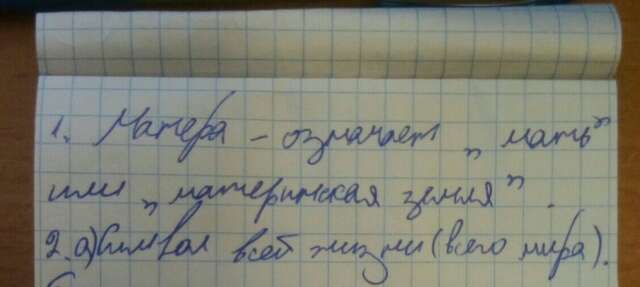 1. Матера – означает „мать”
или „материнская земля”.
2. а) Символ всей жизни (всего мира).